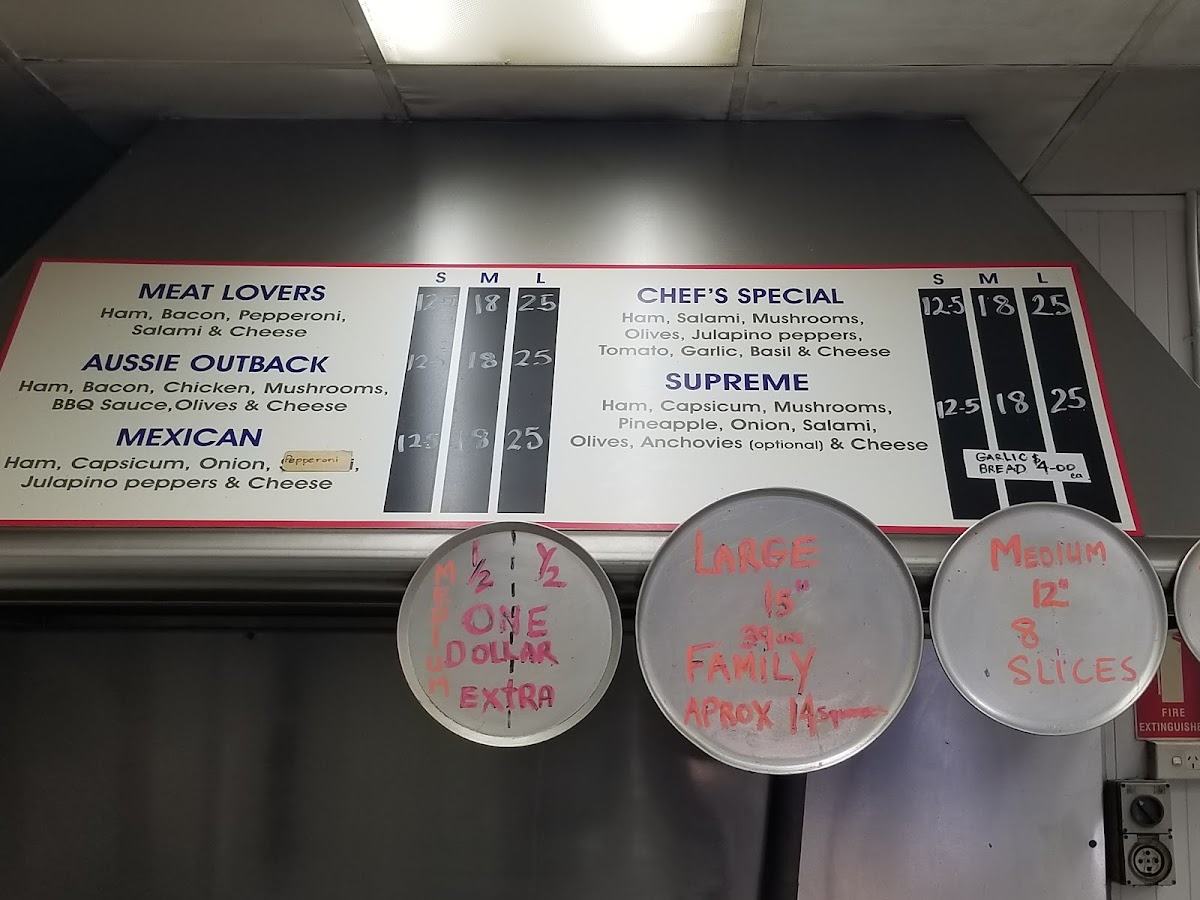 S M L
MEAT LOVERS
12.5 18 25
Ham, Bacon, Pepperoni,
Salami & Cheese
AUSSIE OUTBACK
12. 18 25
Ham, Bacon, Chicken, Mushrooms,
BBQ Sauce, Olives & Cheese
MEXICAN
12.5 18 25
Ham, Capsicum, Onion, Pepperoni,
Julapino peppers & Cheese
S M L
CHEF'S SPECIAL
12.5 18 25
Ham, Salami, Mushrooms,
Olives, Julapino peppers,
Tomato, Garlic, Basil & Cheese
SUPREME
12.5 18 25
Ham, Capsicum, Mushrooms,
Pineapple, Onion, Salami,
Olives, Anchovies (optional) & Cheese
GARLIC $
BREAD 4-00
ea
MEDIUM
1/2 1/2
ONE
DOLLAR
EXTRA
LARGE
15"
39cm
FAMILY
APROX 14
MEDIUM
12"
8
SLICES
FIRE
EXTINGUISHE